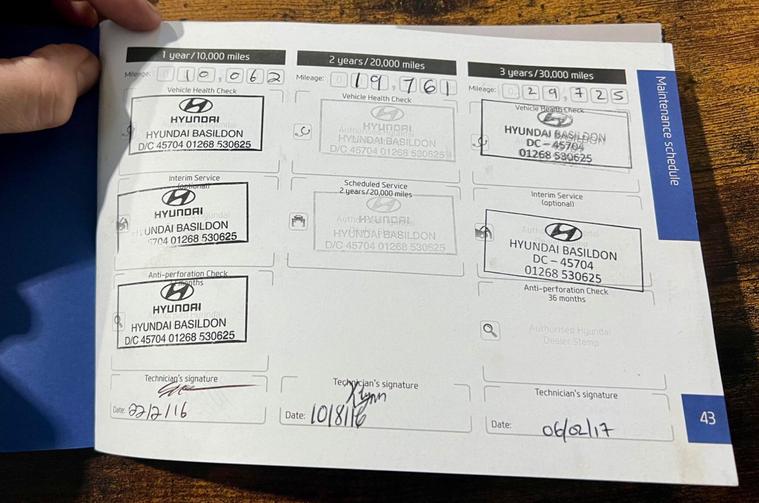 1 year/10,000 miles
Mileage: 0 10,062
Vehicle Health Check
HYUNDAI
HYUNDAI BASILDON
D/C 45704 01268 530625
Interim Service
(optional)
HYUNDAI
HYUNDAI BASILDON
45704 01268 530625
Anti-perforation Check
HYUNDAI
HYUNDAI BASILDON
D/C 45704 01268 530625
Technician's signature
Date: 22/2/16
2 years/20,000 miles
Mileage: 0 19,761
Vehicle Health Check
HYUNDAI
HYUNDAI BASILDON
D/C 45704 01268 530625
Scheduled Service
2 years/20,000 miles
HYUNDAI
HYUNDAI BASILDON
D/C 45704 01268 530625
Technician's signature
Date: 10/8/16
3 years/30,000 miles
Mileage: 0 29,725
Vehicle Health Check
HYUNDAI BASILDON
DC – 45704
01268 530625
Interim Service
(optional)
HYUNDAI BASILDON
DC – 45704
01268 530625
Anti-perforation Check
36 months
Authorised Hyundai
Dealer Stamp
Technician's signature
Date: 06/02/17
Maintenance schedule
43